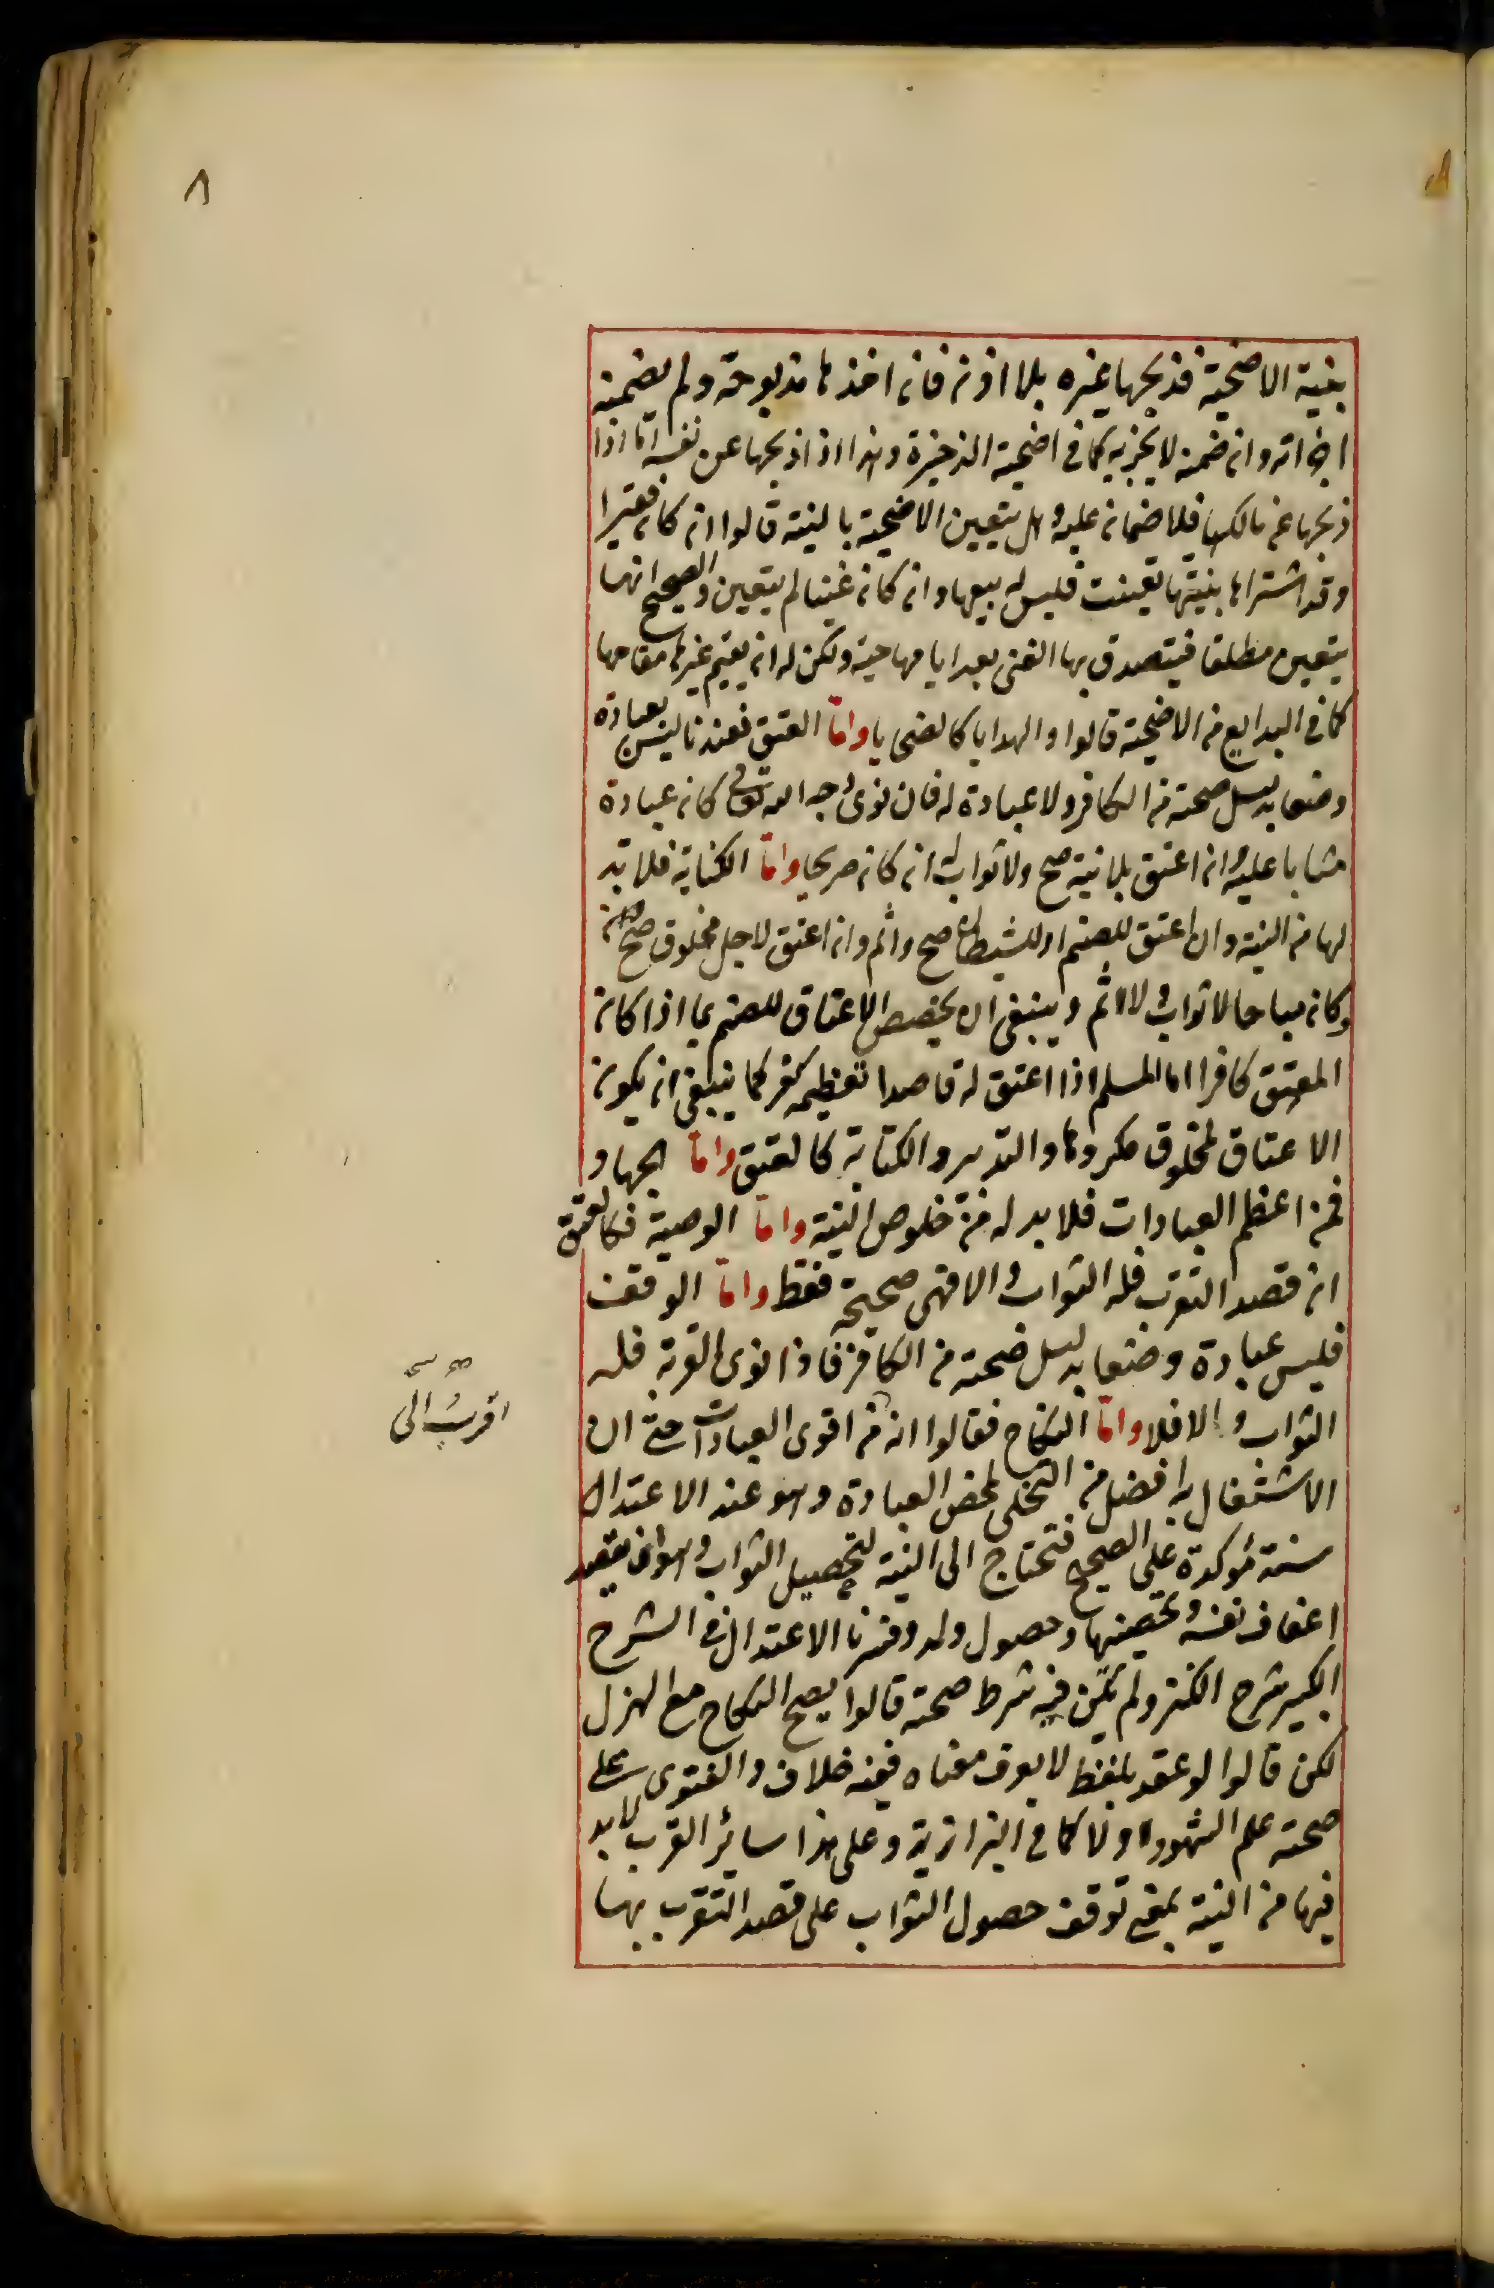 ٨
بنية الاضحية فذبحها غيره بلا اذن فان اخذها مذبوحة ولم يضمنه
اجزاته وان ضمنه لا تجزيه كما في اضحية الذخيرة وهذا اذا ذبحها عن نفسه اما اذا
ذبحها عن مالكها فلا ضمان عليه وهل يتعين الاضحية بالنية قالوا ان كان فقيرا
وقد اشتراها بنيتها تعينت فليس له بيعها وان كان غنيا لم يتعين والصحيح انها
يتعين مطلقا فيتصدق بها الغنى بعد ايامها حية ولكن له ان يقيم غيرها مقامها
كما في البدايع من الاضحية قالوا والهدايا كالضحايا واما العتق فعندنا ليس بعبادة
وضعا بدليل صحته من الكافر ولا عبادة له فان نوى وجه الله تعالى كان عبادة
مثابا عليه وان اعتق بلا نية صح ولا ثواب له ان كان صريحا واما الكناية فلا بد
لها من النية وان اعتق للصنم او للشيطان صح واثم وان اعتق لاجل مخلوق صح
وكان مباحا لا ثواب ولا اثم وينبغي ان يخصص الاعتاق للصنم بما اذا كان
المعتق كافرا اما المسلم اذا اعتق له قاصدا تعظيمه كفر كما ينبغي ان يكون
الاعتاق لمخلوق مكروها والتدبير والكتابة كالعتق واما الجهاد
فمن اعظم العبادات فلا بد له من خلوص النية واما الوصية فكالعتق
ان قصد التقرب فله الثواب والا فهي صحيحة فقط واما الوقف
فليس عبادة وضعا بدليل صحته من الكافر فاذا نوى القربة فله
الثواب والا فلا واما النكاح فقالوا انه من اقوى العبادات حتى ان
الاشتغال به افضل من التخلي لمحض العبادة وهو عند الاعتدال
سنة مؤكدة على الصحيح فتحتاج الى النية لتحصيل الثواب وهو ان يقصد
اعفاف نفسه وتحصينها وحصول ولد وفسرنا الاعتدال في الشرح
الكبير شرح الكنز ولم تكن فيه شرط صحته قالوا يصح النكاح مع الهزل
لكن قالوا لو عقد بلفظ لا يعرف معناه ففيه خلاف والفتوى على
صحته علم الشهود اولا كما في البزازية وعلى هذا سائر القرب لابد
فيها من النية بمعنى توقف حصول الثواب على قصد التقرب بها
اقرب الى